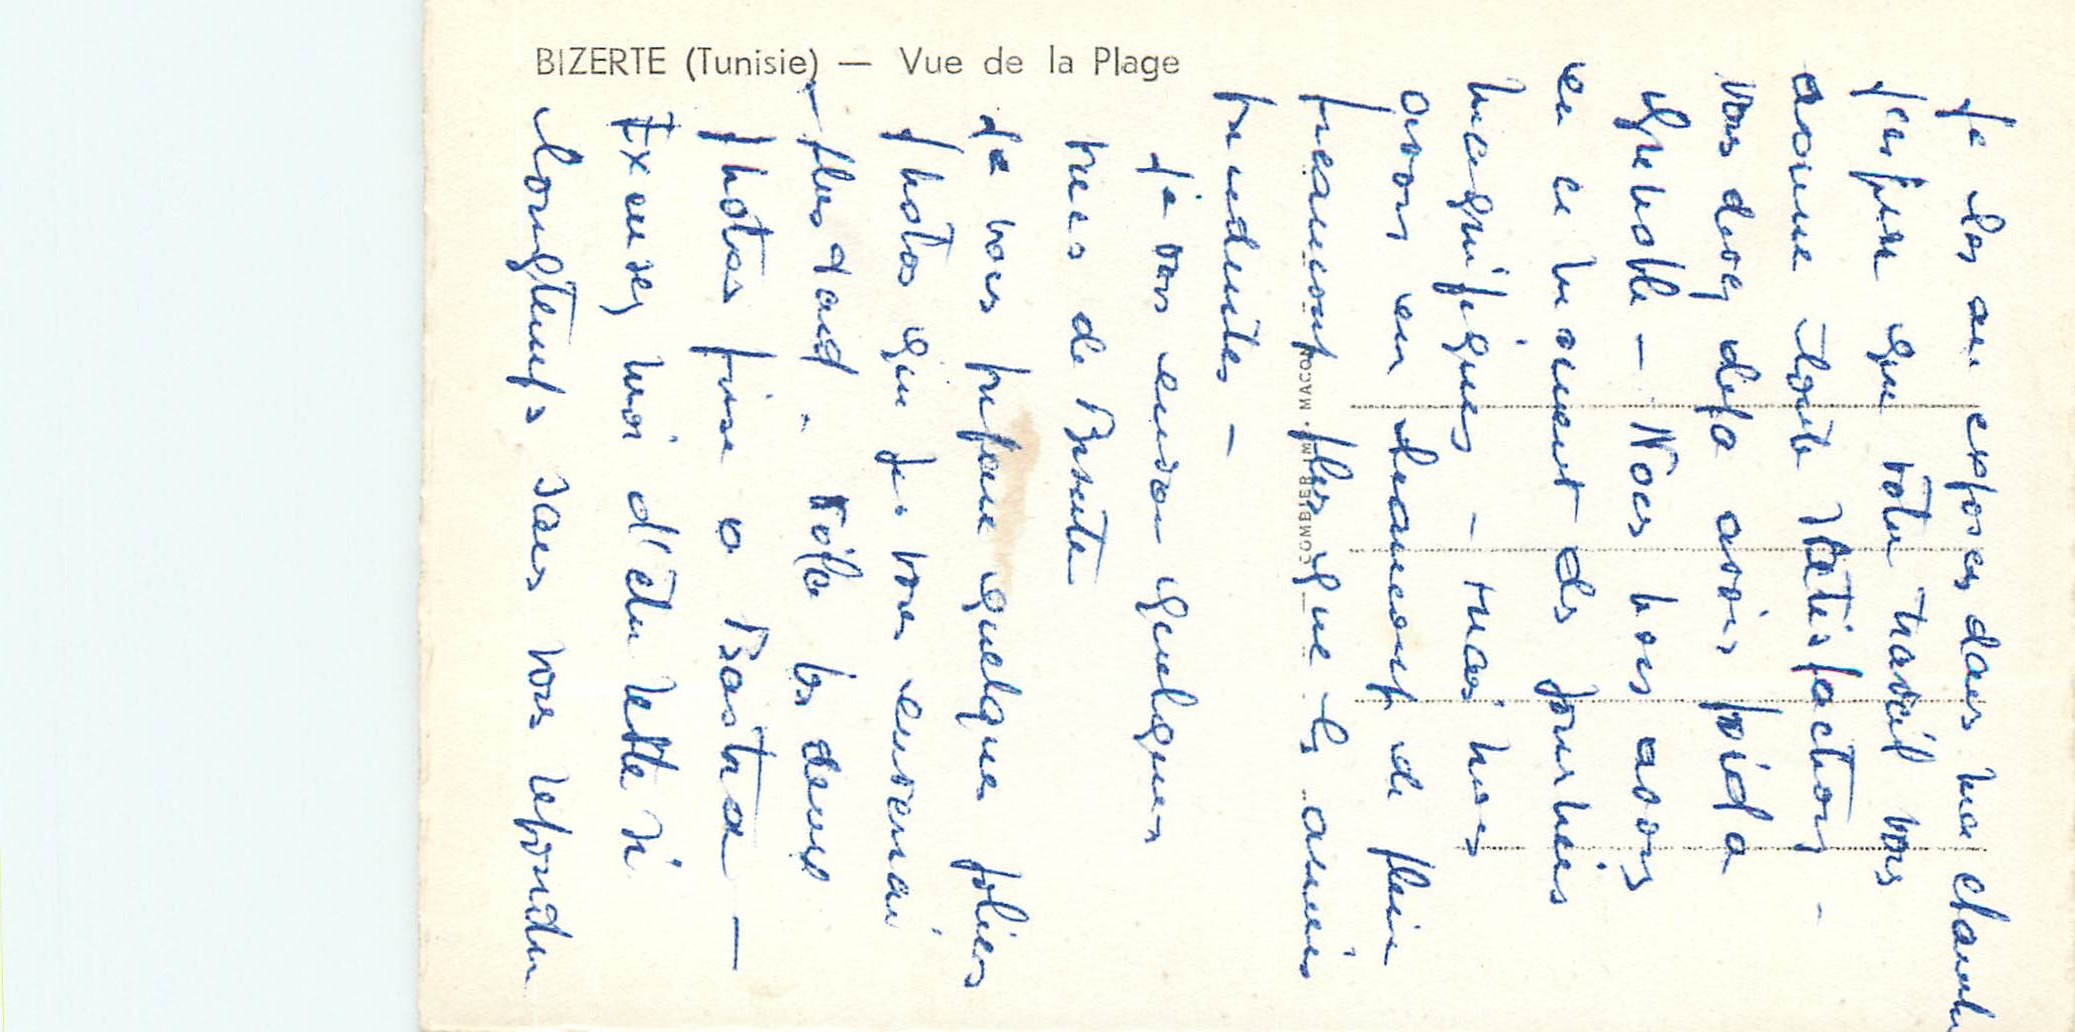 BIZERTE (Tunisie) — Vue de la Plage
COMBIER IMP. MACON
Je les ai exposés dans ma chambre
j'espère que votre travail vous
donne toute satisfaction -
vous devez déjà avoir froid a
Grenoble - Nous nous avons
en ce moment des journées
magnifiques - mais nous
avons eu beaucoup de pluie
beaucoup plus que les années
précédentes -
Je vous envoie quelques
vues de Bizerte
Je vous prépare quelques jolies
photos que je vous enverrai
plus tard. Voila les deux
photos prise a Bastia -
Excusez moi d'être resté si
longtemps sans vous repondre